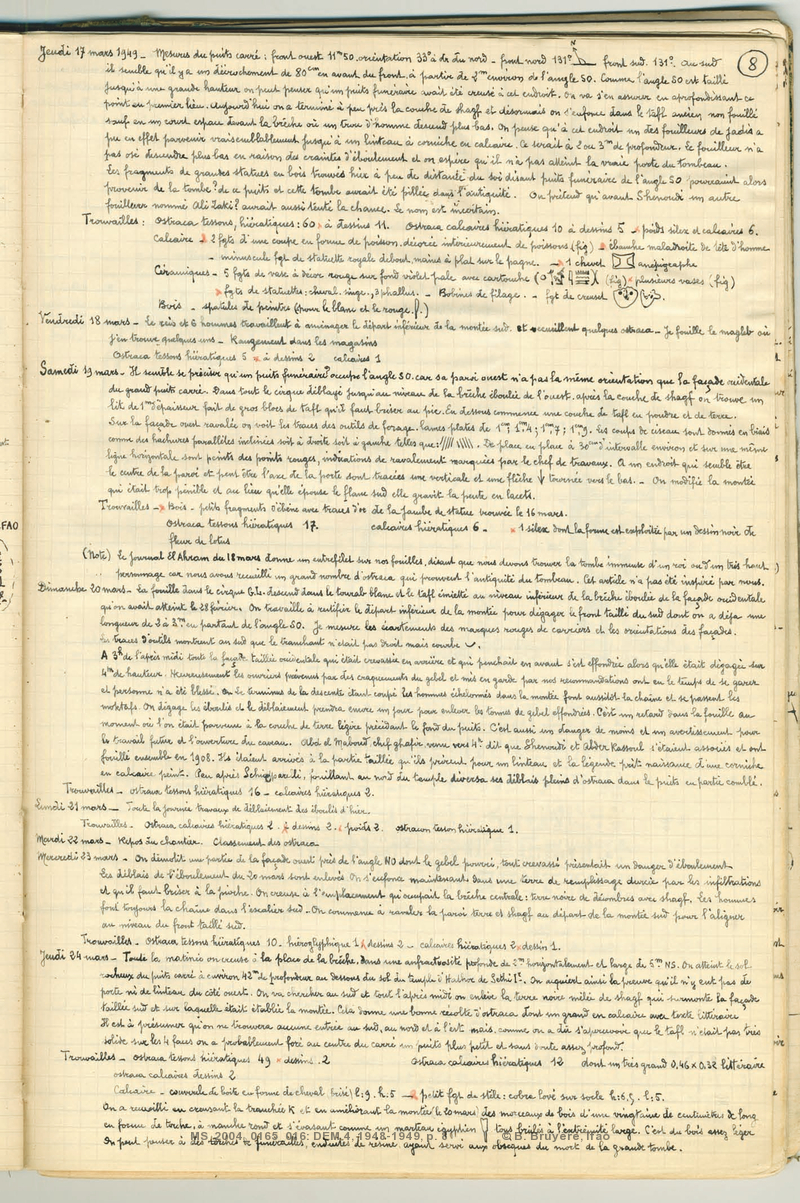 8
Jeudi 17 mars 1949 – Mesures du puits carré : front ouest 11m50. orientation 33° à dr. du nord – front nord 131° N front sud. 131°. au sud
il semble qu'il y a un décrochement de 80cm en avant du front, à partir de 2m environ de l'angle SO. Comme l'angle SO est taillé
jusqu'à une grande hauteur on peut penser qu'un puits funéraire avait été creusé à cet endroit. On va s'en assurer en approfondissant ce
point en premier lieu. Aujourd'hui on a terminé à peu près la couche de shagf et désormais on s'enfonce dans le tafl ancien non fouillé
sauf en un court espace devant la brèche où un trou d'homme descend plus bas. On pense qu'à cet endroit un des fouilleurs de jadis a
pu en effet parvenir vraisemblablement jusqu'à un linteau à corniche en calcaire. Ce serait à 2 ou 3m de profondeur. Le fouilleur n'a
pas osé descendre plus bas en raison des craintes d'éboulement et on espère qu'il n'a pas atteint la vraie porte du tombeau.
Les fragments de grandes statues en bois trouvés hier à peu de distance du soi disant puits funéraire de l'angle SO pourraient alors
provenir de la tombe de ce puits et cette tombe aurait été pillée dans l'antiquité. On prétend qu'avant Shenoudi un autre
fouilleur nommé Ali Zaki? aurait aussi tenté la chance. Le nom est incertain.
Trouvailles : Ostraca tessons, hiératiques : 60 à dessins 11. Ostraca calcaires hiératiques 10 à dessins 5 – poids silex et calcaires 6.
Calcaire – 2 fgts d'une coupe en forme de poisson, décorée intérieurement de poissons (fig) – ébauche maladroite de tête d'homme
– minuscule fgt de statuette royale debout, mains à plat sur le pagne. – 1 chevet anépigraphe
Céramiques – 5 fgts de vase à décor rouge sur fond violet pâle avec cartouche (fig) plusieurs vases (fig)
fgts de statuettes : cheval. singe, 3 phallus. – Bobines de filage. – fgt de creuset
Bois – spatules de peintre (pour le blanc et le rouge.)
Vendredi 18 mars – Le reis et 6 hommes travaillent à aménager le départ inférieur de la montée sud. et recueillent quelques ostraca – Je fouille le magleb où
j'en trouve quelques uns – Rangement dans les magasins
Ostraca tessons hiératiques 5 à dessins 2 calcaires 1
Samedi 19 mars – Il semble se préciser qu'un puits funéraire? occupe l'angle SO. car sa paroi ouest n'a pas la même orientation que la façade occidentale
du grand puits carré. Dans tout le cirque déblayé jusqu'au niveau de la brèche éboulée de l'ouest, après la couche de shagf on trouve un
lit de 1m d'épaisseur fait de gros blocs de tafl qu'il faut briser au pic. En dessous commence une couche de tafl en poudre et de terre.
Sur la façade ouest ravalée on voit les traces des outils de forage. Lames plates de
comme des hachures parallèles inclinées soit à droite soit à gauche telles que: De place en place à 30cm d'intervalle environ et sur une même
ligne horizontale sont peints des points rouges, indications de ravalement marquées par le chef de travaux. A un endroit qui semble être
le centre de la paroi et peut être l'axe de la porte sont tracées une verticale et une flèche ↓ tournée vers le bas. – On modifie la montée
qui était trop pénible et au lieu qu'elle épouse le flanc sud elle gravit la pente en lacets.
Trouvailles – Bois – petits fragments d'ébène avec traces d'or de la jambe de statue trouvée le 16 mars.
Ostraca tessons hiératiques 17. calcaires hiératiques 6 – 1 silex dont la forme est exploitée par un dessin noir de
fleur de lotus
(Note) Le journal El Ahram du 18 mars donne un entrefilet sur nos fouilles, disant que nous devons trouver la tombe immense d'un roi ou d'un très haut
personnage car nous avons recueilli un grand nombre d'ostraca qui prouvent l'antiquité du tombeau. Cet article n'a pas été inspiré par nous.
Dimanche 20 mars – La fouille dans le cirque G.te. descend dans le tourab blanc et le tafl émietté au niveau inférieur de la brèche éboulée de la façade occidentale
qu'on avait atteint le 28 février. On travaille à rectifier le départ inférieur de la montée pour dégager le front taillé du sud dont on a déjà une
longueur de 2 à 3m en partant de l'angle SO. Je mesure les écartements des marques rouges de carriers et les orientations des façades.
Les traces d'outils montrent au sud que le tranchant n'était pas droit mais courbe
A 3h de l'après midi toute la façade taillée occidentale qui était crevassée en arrière et qui penchait en avant s'est effondrée alors qu'elle était dégagée sur
4m de hauteur. Heureusement les ouvriers prévenus par des craquements du gebel et mis en garde par nos recommandations ont eu le temps de se garer
et personne n'a été blessé. On les termines de la descente étant coupé les hommes échelonnés dans la montée font aussitôt la chaîne et se passent les
moktafs. On dégage les éboulis et le déblaiement prendra encore un jour pour enlever les tonnes de gebel effondrées. C'est un retard dans la fouille au
moment où l'on était parvenu à la couche de terre légère précédant le fond du puits. C'est aussi un danger de moins et un avertissement pour
le travail futur et l'ouverture du caveau. Abd el Maboud, chef ghafir venu vers 4h dit que Shenoudi et Abder Rassoul s'étaient associés et ont
fouillé ensemble en 1908. Ils étaient arrivés à la partie taillée qu'ils prirent pour un linteau et la légende prit naissance d'une corniche
en calcaire peint. Peu après Schiaparelli, fouillant au nord du temple diversa ses déblais pleins d'ostraca dans le puits en partie comblé.
Trouvailles – ostraca tessons hiératiques 16 – calcaires hiératiques 2.
Lundi 21 mars – Toute la journée travaux de déblaiement des éboulis d'hier.
Trouvailles – Ostraca calcaires hiératiques 2. dessins 2. poids 2. ostracon tesson hiératique 1.
Mardi 22 mars – Repos du chantier. Classement des ostraca
Mercredi 23 mars – On démolit une partie de la façade ouest près de l'angle NO dont le gebel pourri, tout crevassé présentait un danger d'éboulement.
Les déblais de l'éboulement du 20 mars sont enlevés. On s'enfonce maintenant dans une terre de remplissage durcie par les infiltrations
et qu'il faut briser à la pioche. On creuse à l'emplacement qu'occupait la brèche centrale : terre noire de décombres avec shagf. Les hommes
font toujours la chaîne dans l'escalier sud – On commence à ravaler la paroi terre et shagf au départ de la montée sud pour l'aligner
au niveau du front taillé sud.
Trouvailles – Ostraca tessons hiératiques 10. hiéroglyphique 1 dessins 2 – calcaires hiératiques 2 dessin 1.
Jeudi 24 mars – Toute la matinée on creuse à la place de la brèche, dans une anfractuosité profonde de 2m horizontalement et large de 5m NS. On atteint le sol
rocheux du puits carré à environ 42m de profondeur au dessous du sol du temple d'Hathor de Sethi Ier. On acquiert ainsi la preuve qu'il n'y eut pas de
porte ni de linteau du côté ouest. On va chercher au sud et tout l'après midi on enlève la terre noire mêlée de shagf qui surmonte la façade
taillée sud et sur laquelle était établie la montée. Cela donne une bonne récolte d'ostraca dont un grand en calcaire avec texte littéraire
Il est à présumer qu'on ne trouvera aucune entrée au sud, au nord et à l'est mais, comme on a dû s'apercevoir que le tafl n'était pas très
solide sur les 4 faces on a probablement foré au centre du carré un puits plus petit et sans doute assez profond.
Trouvailles – ostraca tessons hiératiques 49 dessins. 2 Ostraca calcaires hiératiques 12 dont un très grand 0,46 x 0.32 littéraire
ostraca calcaires dessins 2
Calcaire – couvercle de boîte en forme de cheval brisé l : 9. h : 5 – petit fgt de stèle : cobra lové sur socle h : 6,5. l : 5.
On a recueilli en creusant la tranchée K et en améliorant la montée le 20 mars des morceaux de bois d'une vingtaine de centimètres de long
en forme de torche, à manche rond et s'évasant comme un marteau égyptien tous brûlés à l'extrémité large. C'est du bois assez léger
On peut penser à des torches funéraires, enduites de résine ayant servi aux obsèques du mort de la grande tombe.
MS_2004_0165_016: DEM 4, 1948-1949, p. 81 © B. Bruyère, Ifao